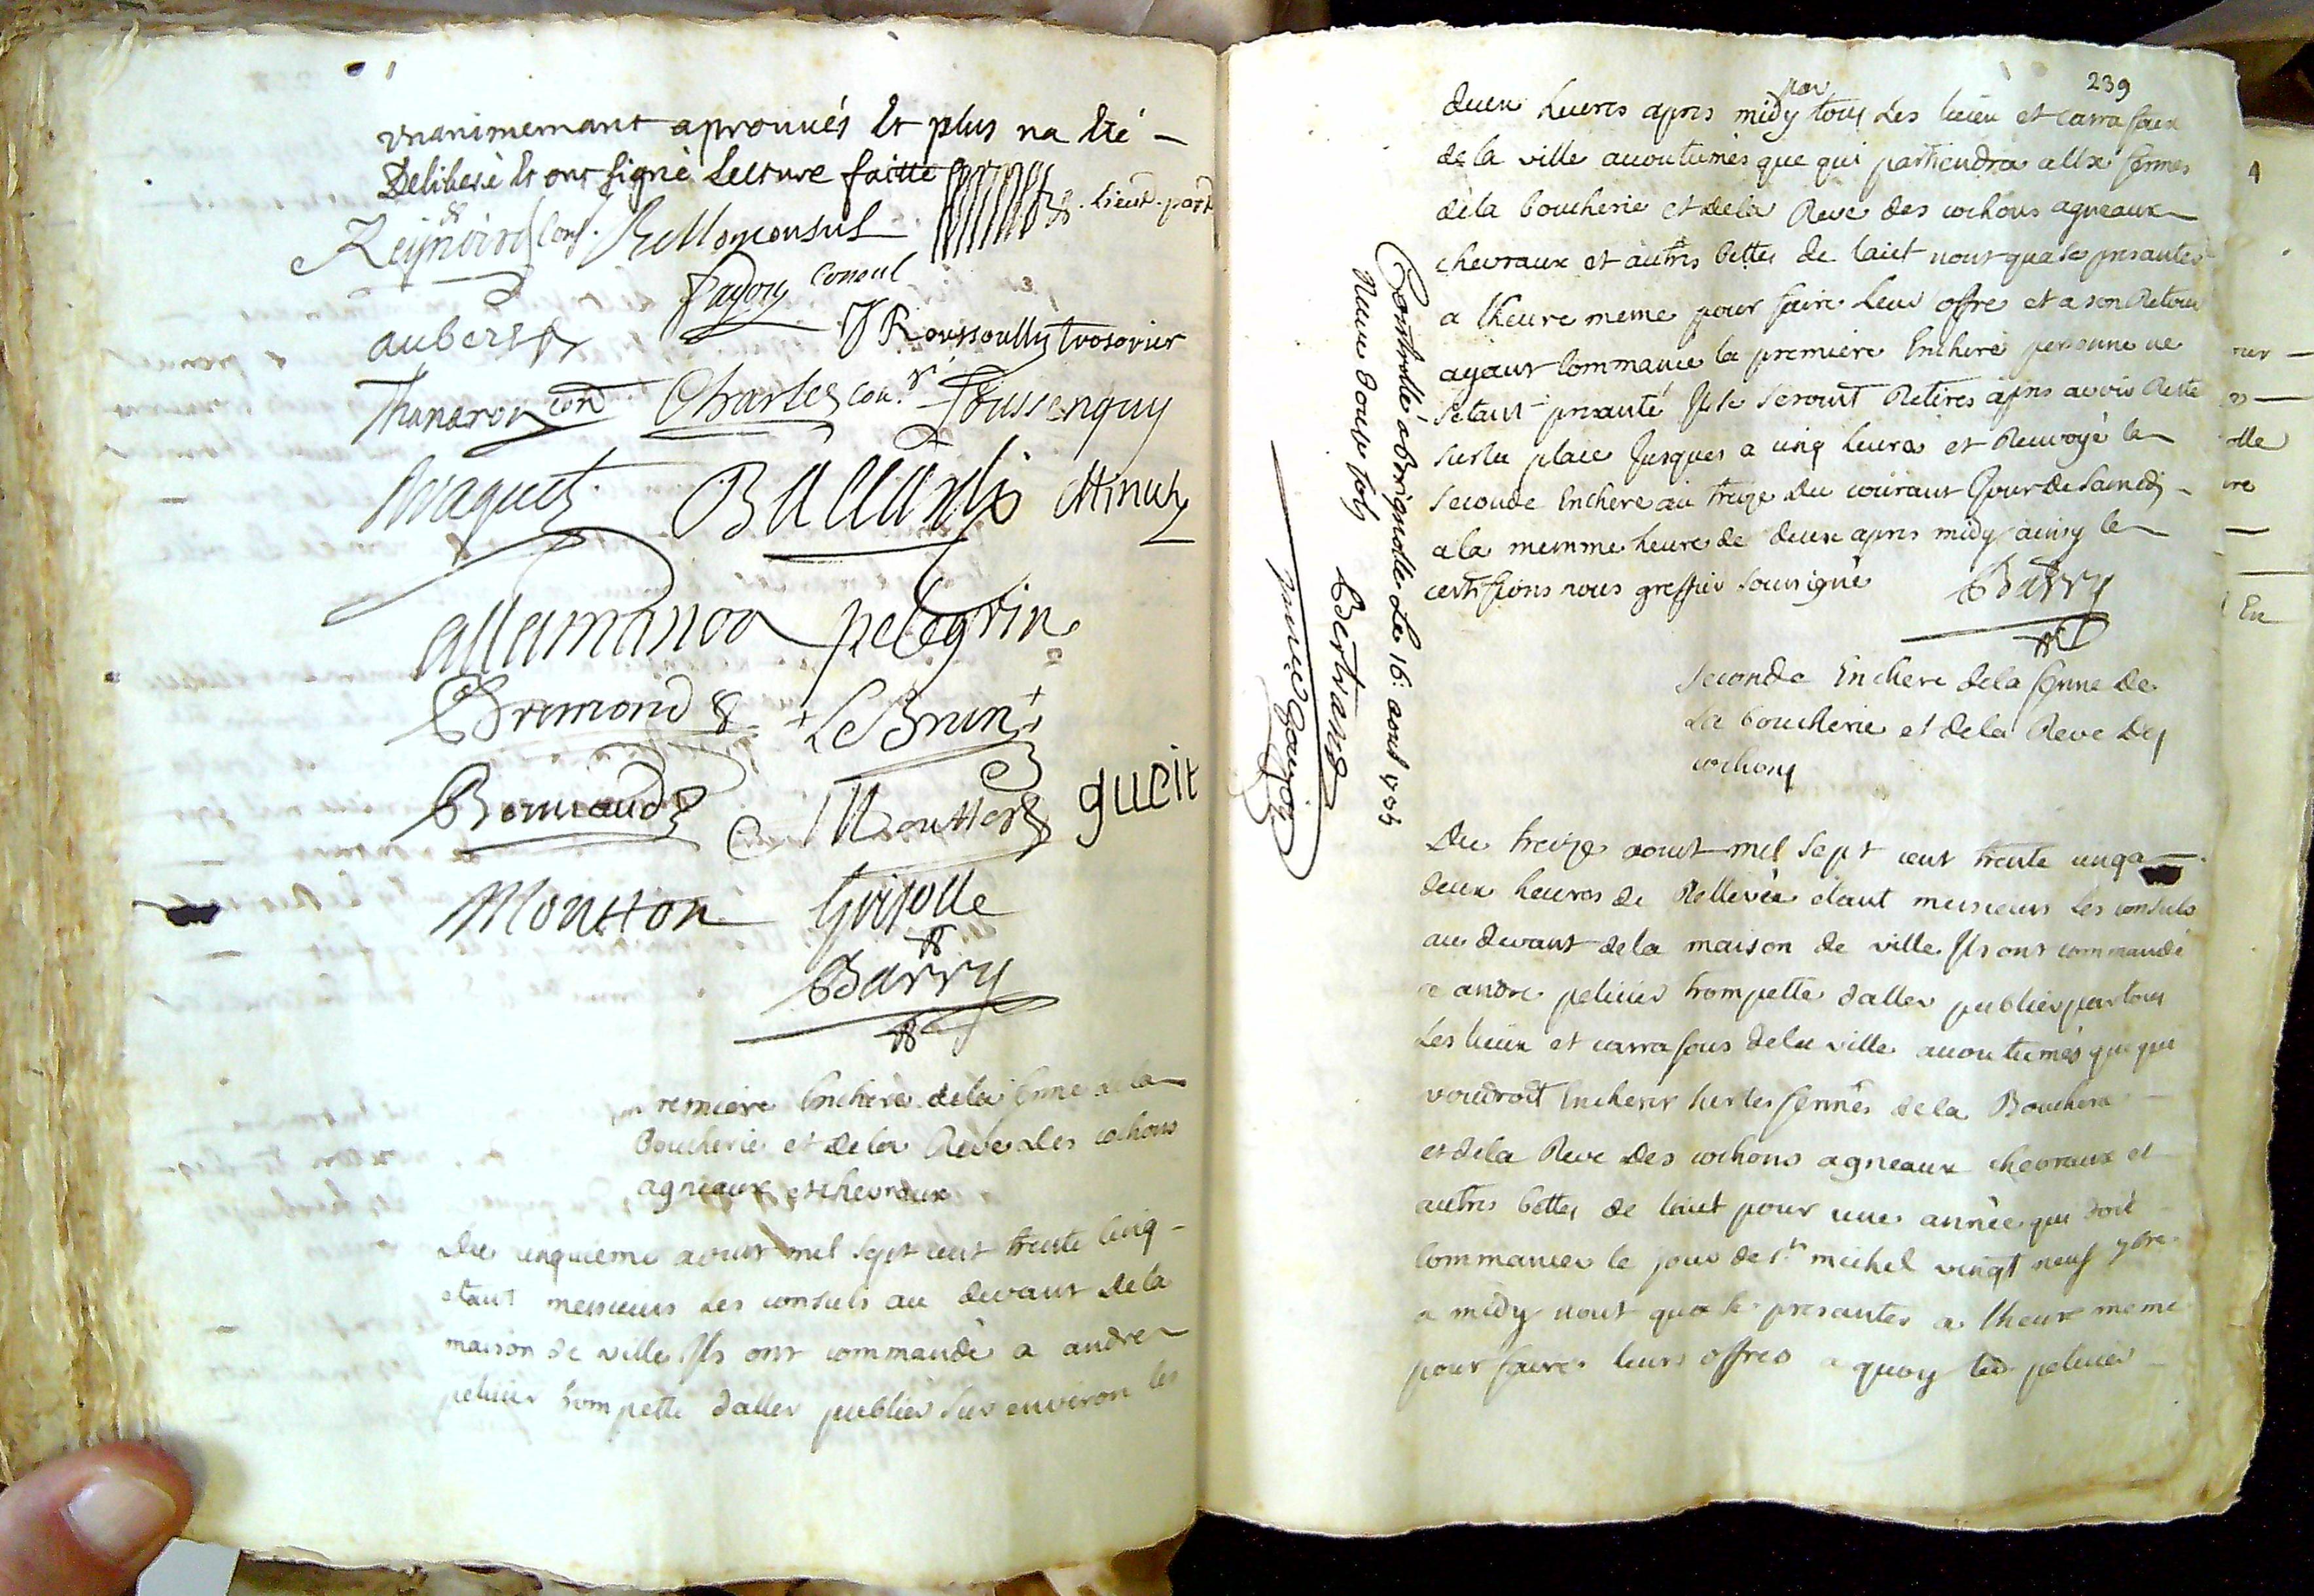 unanimemant aprouués et plus na été
Deliberé et ont signé lecture faitte
lieut. part
Reynoird Cons. Bellon consul
fagou consul
aubert J Roussoully tresorier
Thaneron con Charles con.r foussenquy
braquet Ballardy Minuty
allemand pelegrin
Bremond Le Brun
Berniaud Moutter gueit
Moutton Grisolle
Barry
premiere Enchere dela ferme dela
Boucherie et dela Reve des cochons
agneaux et chevraux
Du cinquieme aoust mil sept cent trente cinq
etant messieurs les consuls au devant dela
maison de ville Ils ont commandé a andre
pelicier trompette daller publier sur environ les
239
deux heures apres midy par tous les lieux et carrafour
dela ville accoutumés que qui pretendra aux fermes
dela boucherie et dela Reve des cochons agneaux
chevraux et autres bettes de laict nont qua se presanter
a lheure meme pour faire leur offre et a son Retour
ayant commancé la premiere Enchere personne ne
setant presanté Ils se seront Retirés apres avoir Resté
sur la place Jusques a cinq heures et Renvoyé la
seconde Enchere au treize du courant Jour de samedy
a la memme heure de deux apres midy ainsy le
certiffions nous greffier soussigné Barry
Controllé a Brignolle Le 16: aout 1735
Receu douze sols
Bertrand
seconde Enchere dela ferme de
La boucherie et dela Reve des
cochons
Du treize aoust mil sept cent trente cinq a
deux heures de Rellevée etant messieurs les consuls
au devant dela maison de ville Ils ont commandé
a andre pelicier trompette daller publier par tous
Les lieux et carrafours dela ville accoutumés que qui
voudroit Encherir sur les fermes dela Boucherie
et dela Reve des cochons agneaux chevraux et
autres bettes de laict pour une année qui doit
commancer le jour de st michel vingt neuf 7bre
a midy nont qua se presanter a lheure meme
pour faire leurs offres a quoy led pelicier